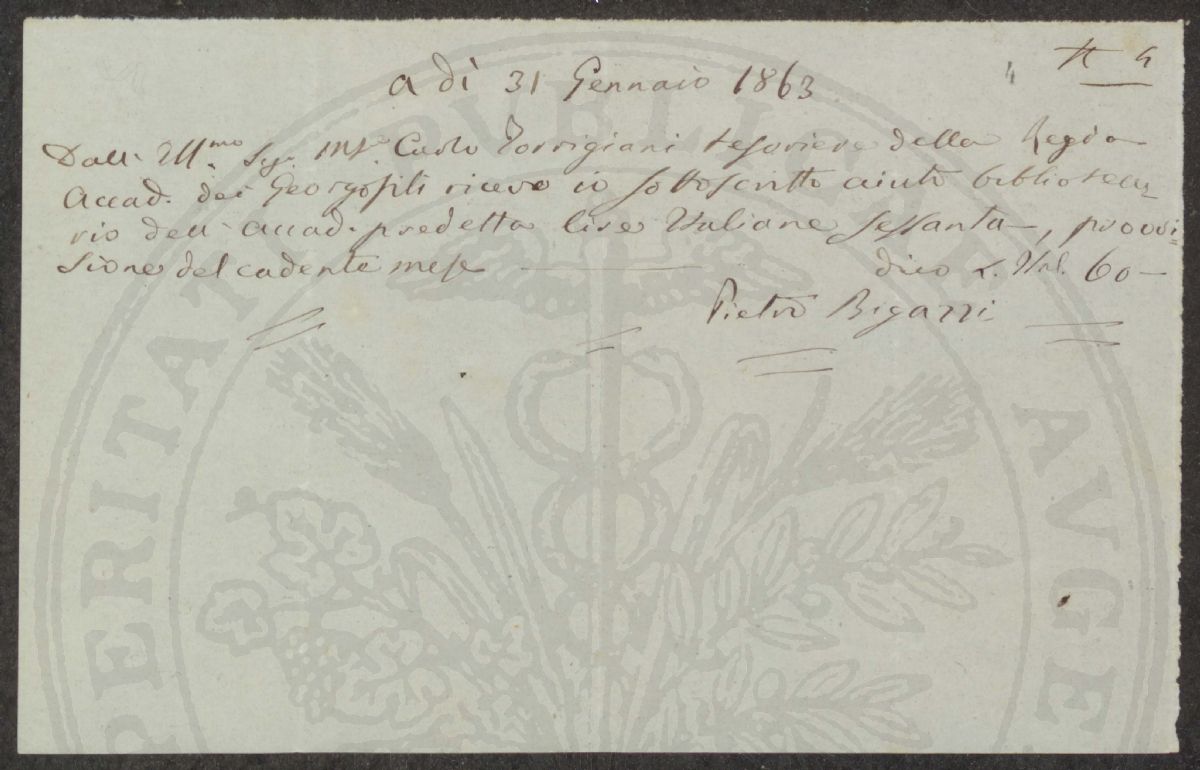 N 4
4
a dì 31 Gennaio 1863
Dall' Ill.mo Sigr. Mse. Carlo Torrigiani tesoriere della Regia
Accad. dei Georgofili ricevo io sottoscritto aiuto biblioteca=
rio dell' Accad. predetta lire Italiane sessanta—, provvi=
sione del cadente mese — dico L. Ital. 60—
Pietro Bigazzi
PERITATI PUBLICAE AUGE